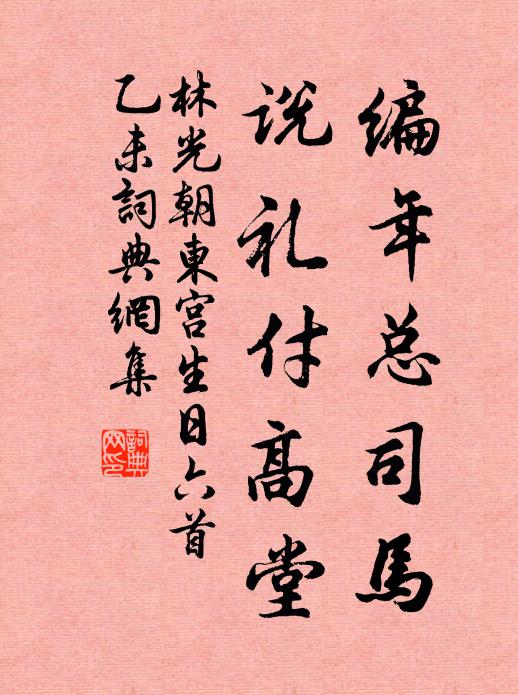 编年总司馬
説礼付高堂
林光朝東宫生日六首
乙未詞典網集
詞典
网印